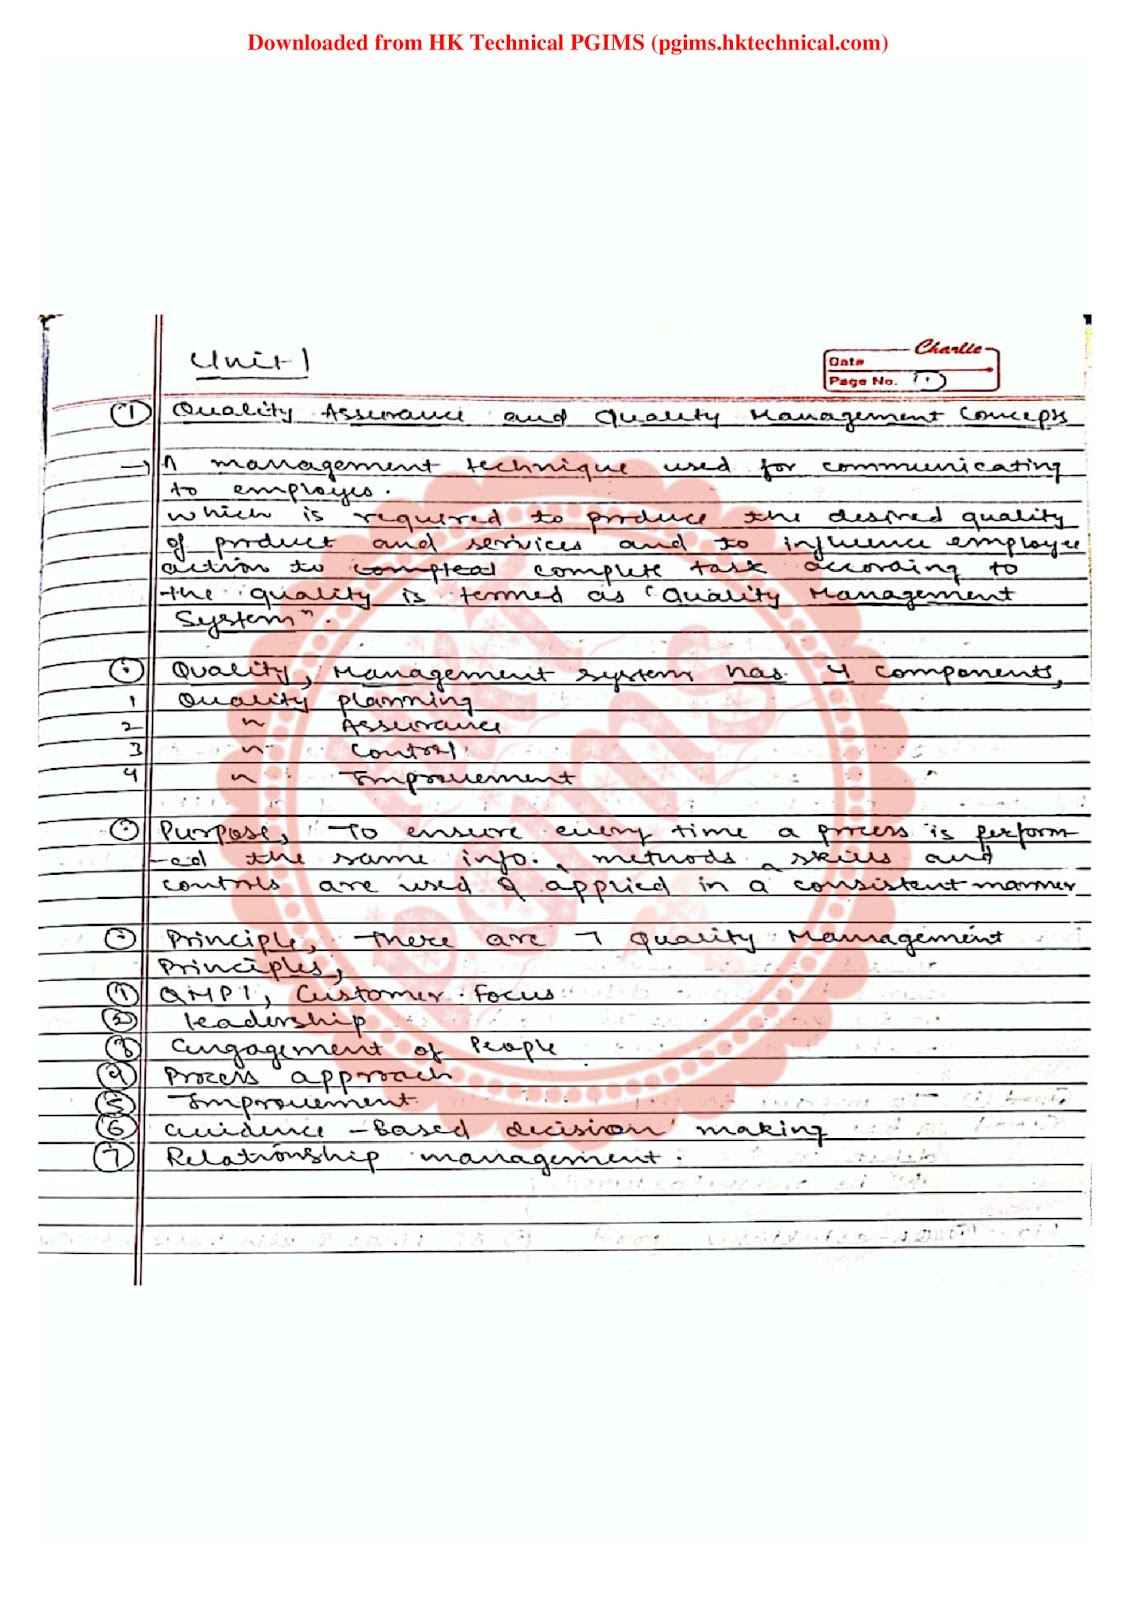 Downloaded from HK Technical PGIMS (pgims.hktechnical.com)
Unit 1
Charlie
Date
Page No. 1
(1) Quality Assurance and Quality Management Concepts
→ A management technique used for communicating
to employes.
which is required to produce the desired quality
of product and services and to influence employee
action to compleat complete task according to
the quality is termed as "Quality Management
System".
Quality, Management system has 4 components,
1 Quality planning
2 " Assurance
3 " Control
4 " Improvement
Purpose, To ensure every time a process is perform-
-ed the same info., methods, skills and
controls are used & applied in a consistent manner
Principle, There are 7 Quality Management
Principles,
(1) QMP1, Customer Focus
(2) leadership
(3) Engagement of People
(4) Process approach
(5) Improvement
(6) Evidence - Based decision making
(7) Relationship management.
HKT
PGIMS